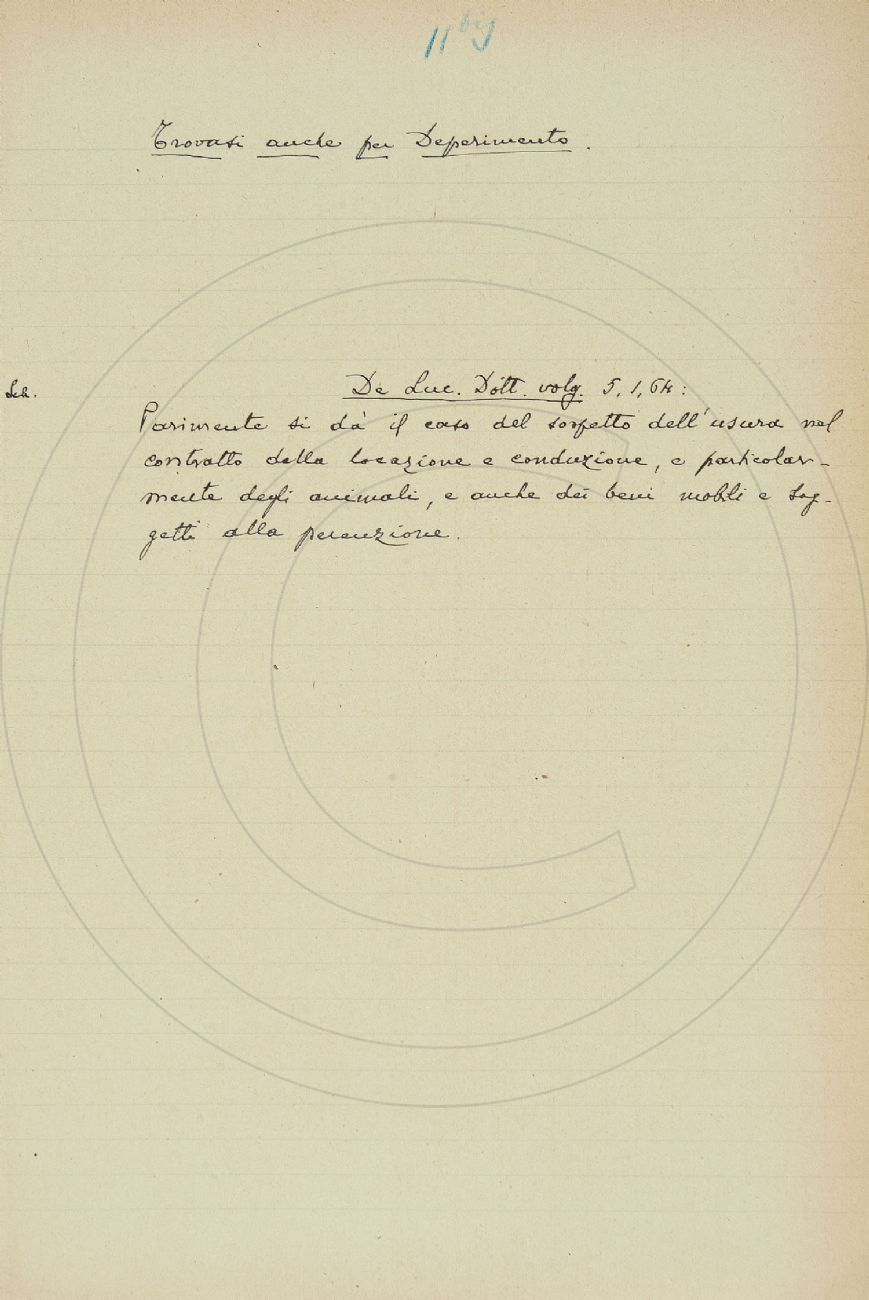 11 bis
Trovasi anche per Deperimento.
Sch.
De Luc. Dott. volg. 5, 1, 64:
Parimente si dà il caso del sospetto dell'usura nel
contratto della locazione e conduzione, e particolar-
mente degli animali, e anche dei beni mobili e sog-
getti alla perenzione.